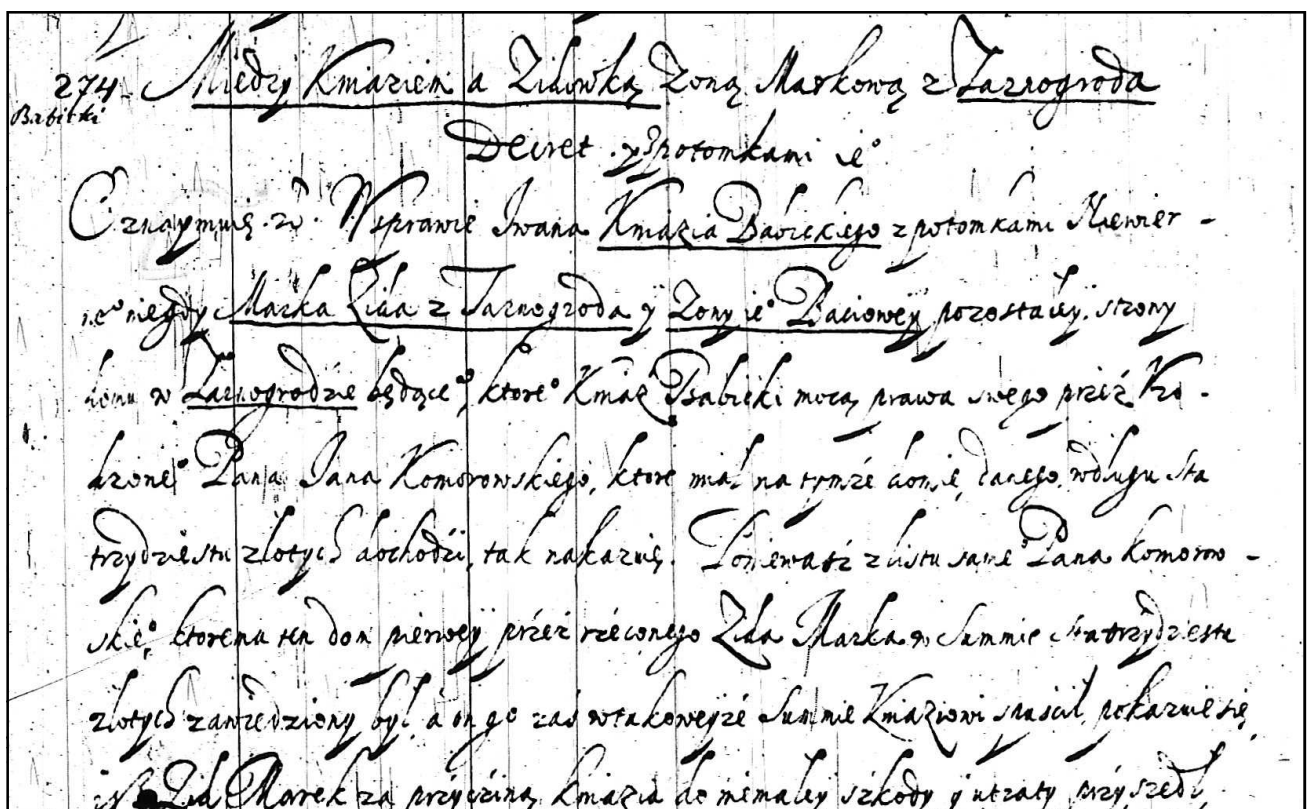 274. Miedzy Kniaziem a Zidowką Zoną Markową z Tarnogroda
Babicki
Decret y z potomkami ie°
Oznaymuię W sprawie Iwana Kniazia Babickiego z potomkami Niewier-
ne° niegdy Marka Zida z Tarnogroda y Zony ie° Baciowey pozostałey, strony
domu w Tarnogrodzie będące°, ktore° Kniaź Babicki mocą prawa swego przéż Vro-
dzone° Pana Jana Komorowskiego, ktore miał na tymże domie, danego, w długu sta
trzydziestu złotych dochodzi, tak nakazuię. Poniewasz z listu same° Pana Komorow-
skie°, ktoremu ten dom pierwey przéz rzeczonego Zida Marka w Summie sta trzydziestu
złotych zawiedziony był, a on go zaś w takoweyze Summie Kniaziowi spuścił, pokazuie się
iż Zid Marek za przyczyną Kniazia do niemałey szkody y utraty przyszedł,